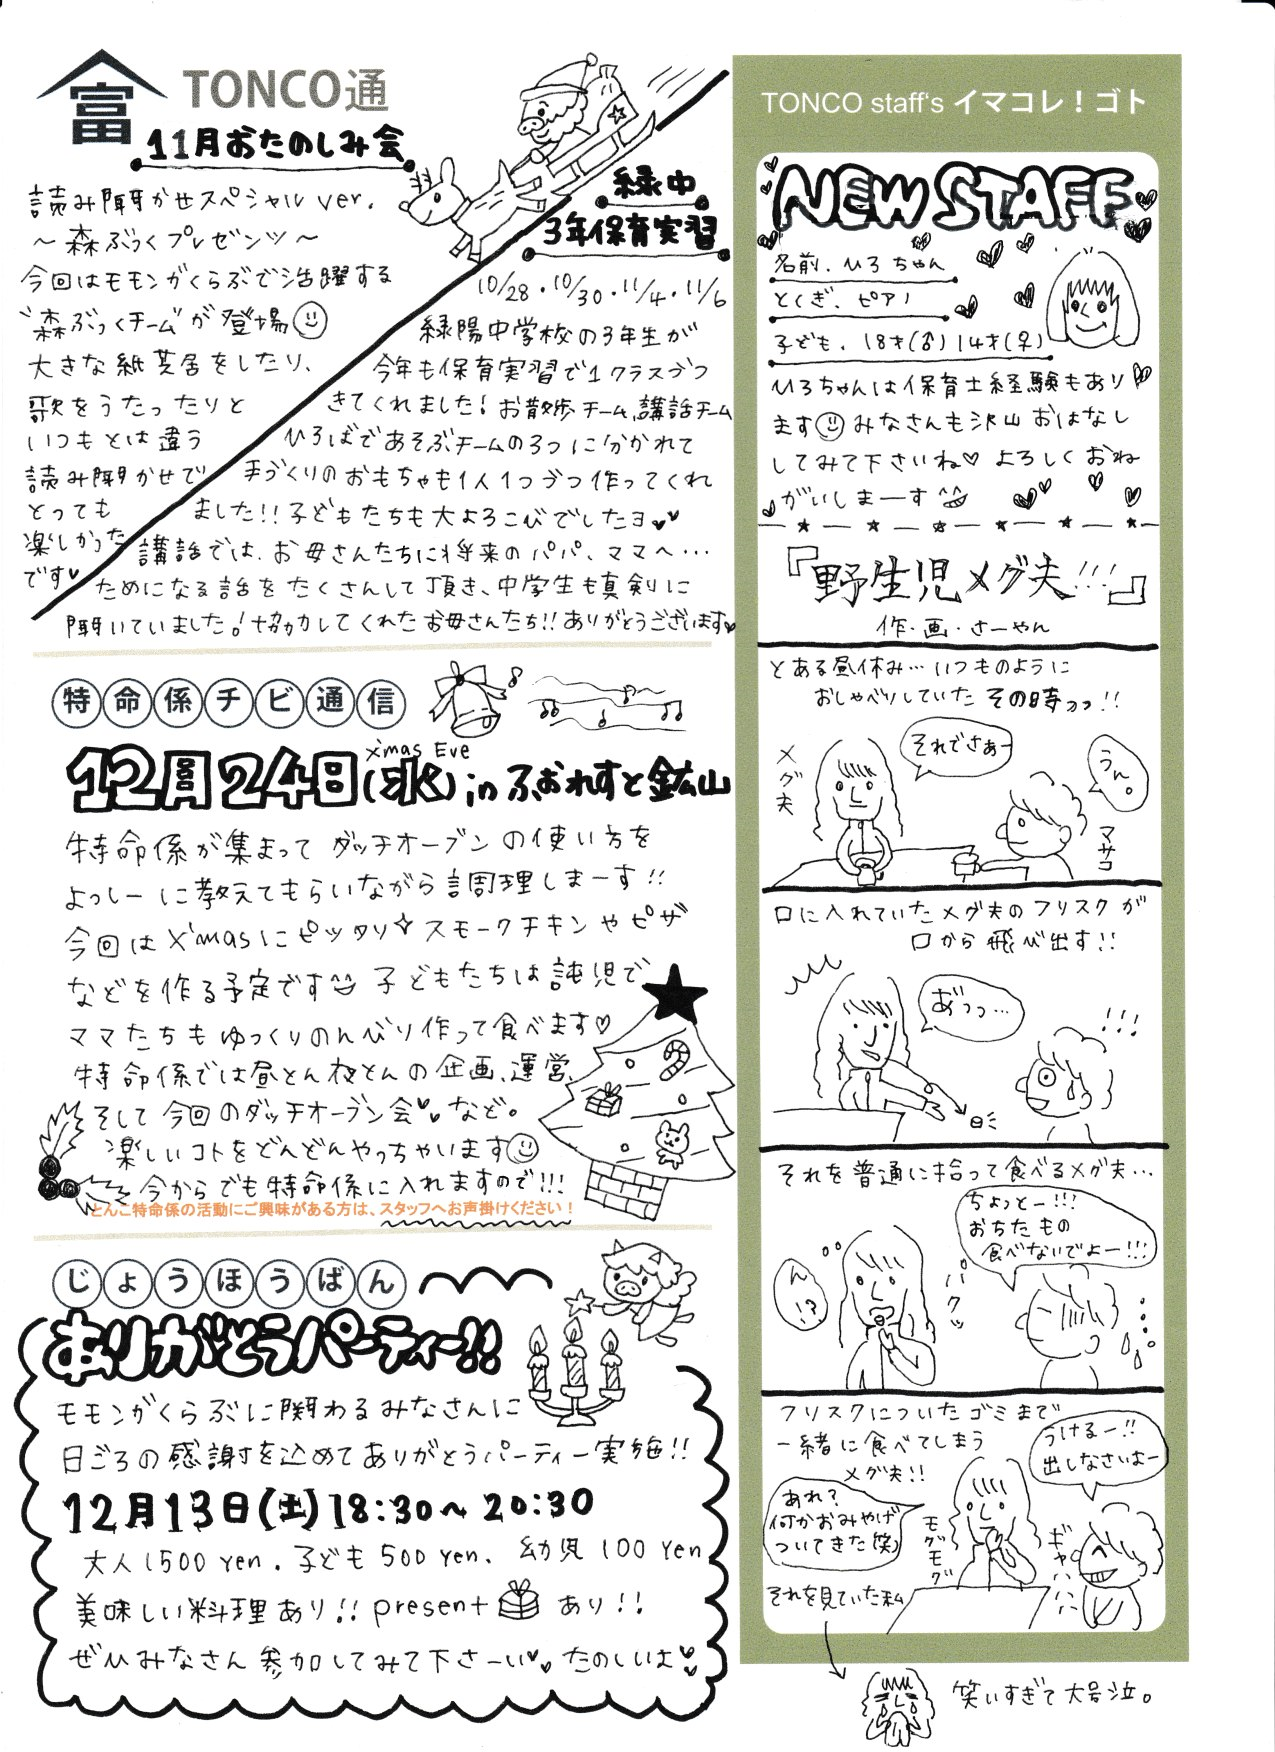 富
TONCO通
11月おたのしみ会
読み聞かせスペシャルver.
～森ぶっくプレゼンツ～
今回はモモンがくらぶで活躍する
"森ぶっくチーム"が登場
大きな紙芝居をしたり、
歌をうたったりと
いつもとは違う
読み聞かせで
とっても
楽しかった
です♥
緑中
3年保育実習
10/28・10/30・11/4・11/6
緑陽中学校の3年生が
今年も保育実習で1クラスづつ
きてくれました！お散歩チーム、講話チーム
ひろばであそぶチームの3つに分かれて
手づくりのおもちゃも1人1つづつ作ってくれ
ました!!子どもたちも大よろこびでしたヨ♥♥
講話では、お母さんたちに将来のパパ、ママへ…
ためになる話をたくさんして頂き、中学生も真剣に
聞いていました！協力してくれたお母さんたち!!ありがとうございます♥
特命係チビ通信
X'mas Eve
12月24日(水)inふぉれすと鉱山
特命係が集まってダッチオーブンの使い方を
よっしーに教えてもらいながら調理しまーす!!
今回はX'masにピッタリ✧スモークチキンやピザ
などを作る予定です 子どもたちは託児で
ママたちもゆっくりのんびり作って食べます♡
特命係では昼とん夜とんの企画、運営、
そして今回のダッチオーブン会♥♥など。
楽しいコトをどんどんやっちゃいます
今からでも特命係に入れますので!!!
とんこ特命係の活動にご興味がある方は、スタッフへお声掛けください！
じょうほうばん
ありがとうパーティー!!
モモンがくらぶに関わるみなさんに
日ごろの感謝を込めてありがとうパーティー実施!!
12月13日(土)18:30～20:30
大人1500yen.子ども500yen、幼児100yen
美味しい料理あり!!present あり!!
ぜひみなさん参加してみて下さーい♥♥たのしいよ♥
TONCO staff's イマコレ！ゴト
NEW STAFF
名前．ひろちゃん
とくぎ．ピアノ
子ども．18才(♂)14才(♀)
ひろちゃんは保育士経験もあり
ます みなさんも沢山おはなし
してみて下さいね♡よろしくおね
がいしまーす
『野生児メグ夫!!!』
作・画・さーやん
とある昼休み…いつものように
おしゃべりしていたその時ッっ!!
メグ夫
それでさぁー
うん。
マサコ
口に入れていたメグ夫のフリスクが
口から飛び出す!!
あ゛っっ…
!!!
それを普通に拾って食べるメグ夫…
ん!?
パクッ
ちょっとー!!!
おちたもの
食べないでよー!!!
フリスクについたゴミまで
一緒に食べてしまう
メグ夫!!
うけるー!!
出しなさいよー
あれ？
何かおみやげ
ついてきた(笑)
モグモグ
ギャハハハ
それを見ていた私
笑いすぎて大号泣。